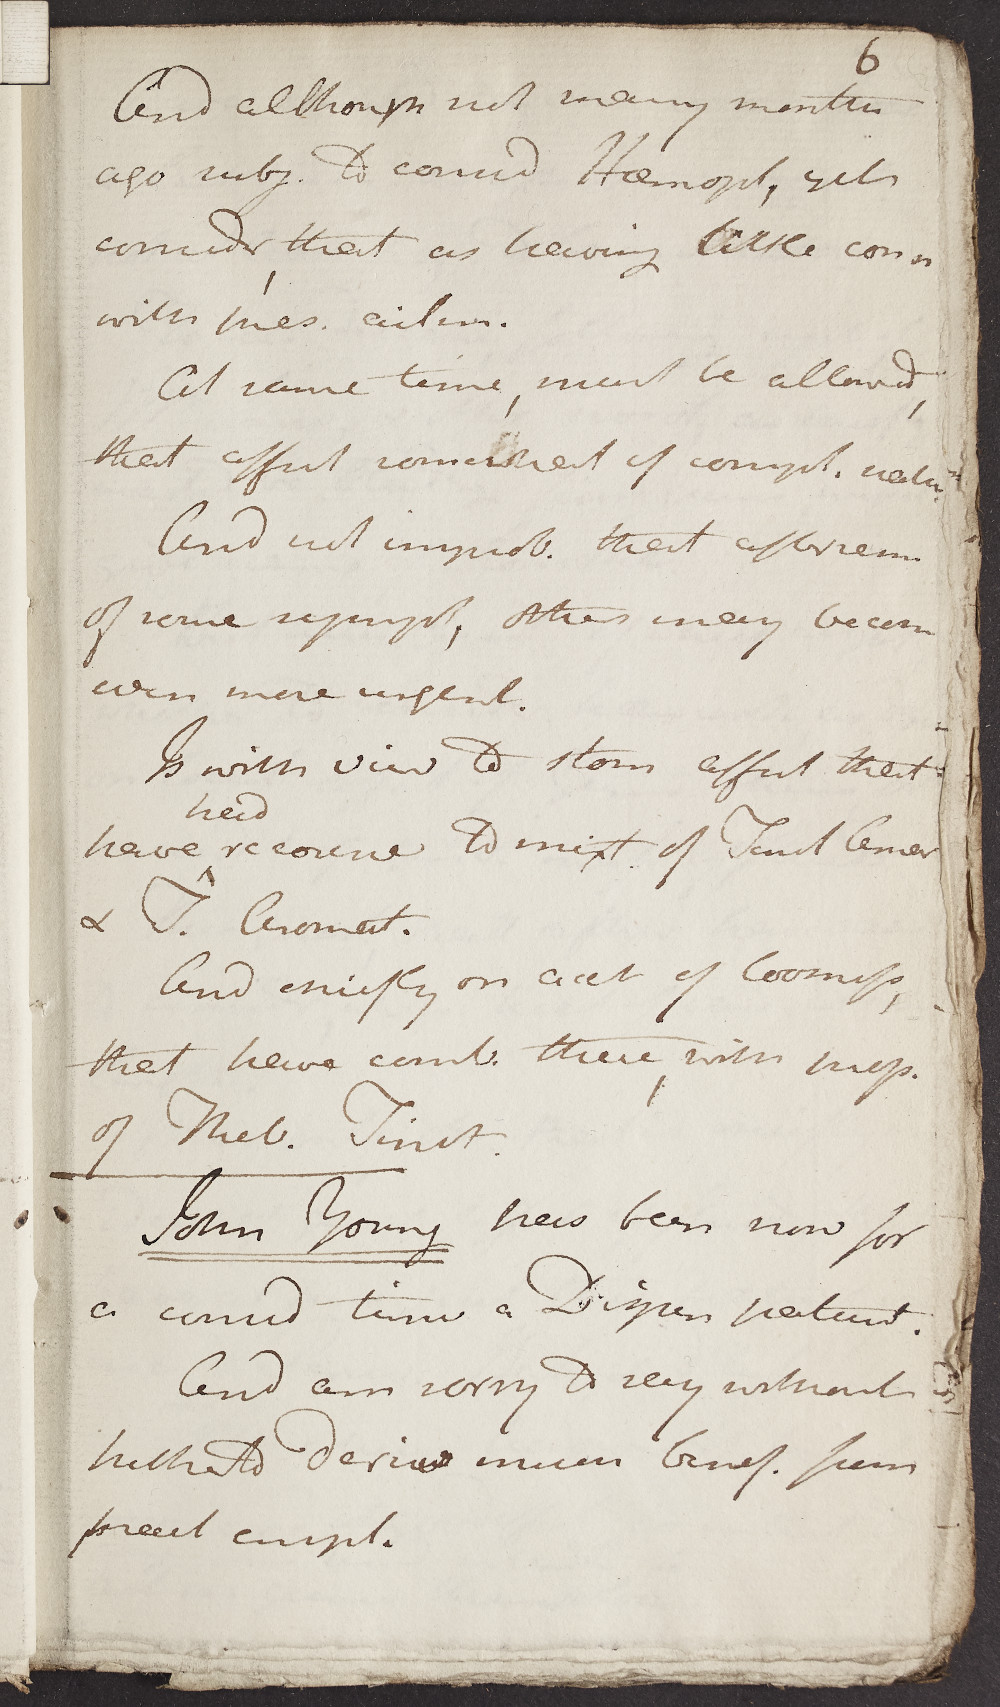 6
And although not many months
ago subj. to consid Hæmopt, yet
consider, that as having little conn
with pres. ailm.
At same time, must be allowed,
that affect somewhat of compl. natu
And not improb. that after rem
of some sympt, others may becom
even more urgent.
Is with view to stom affect that
had
have recourse to mixt. of Tinct Amar
& T. Aromat.
And chiefly on acct of loosness,
that have comb. these, with prop.
of Theb. Tinct.
John Young has been now for
a consid time a Dispen patient.
And am sorry to say without
hitherto deriving much benef. from
pract empl.